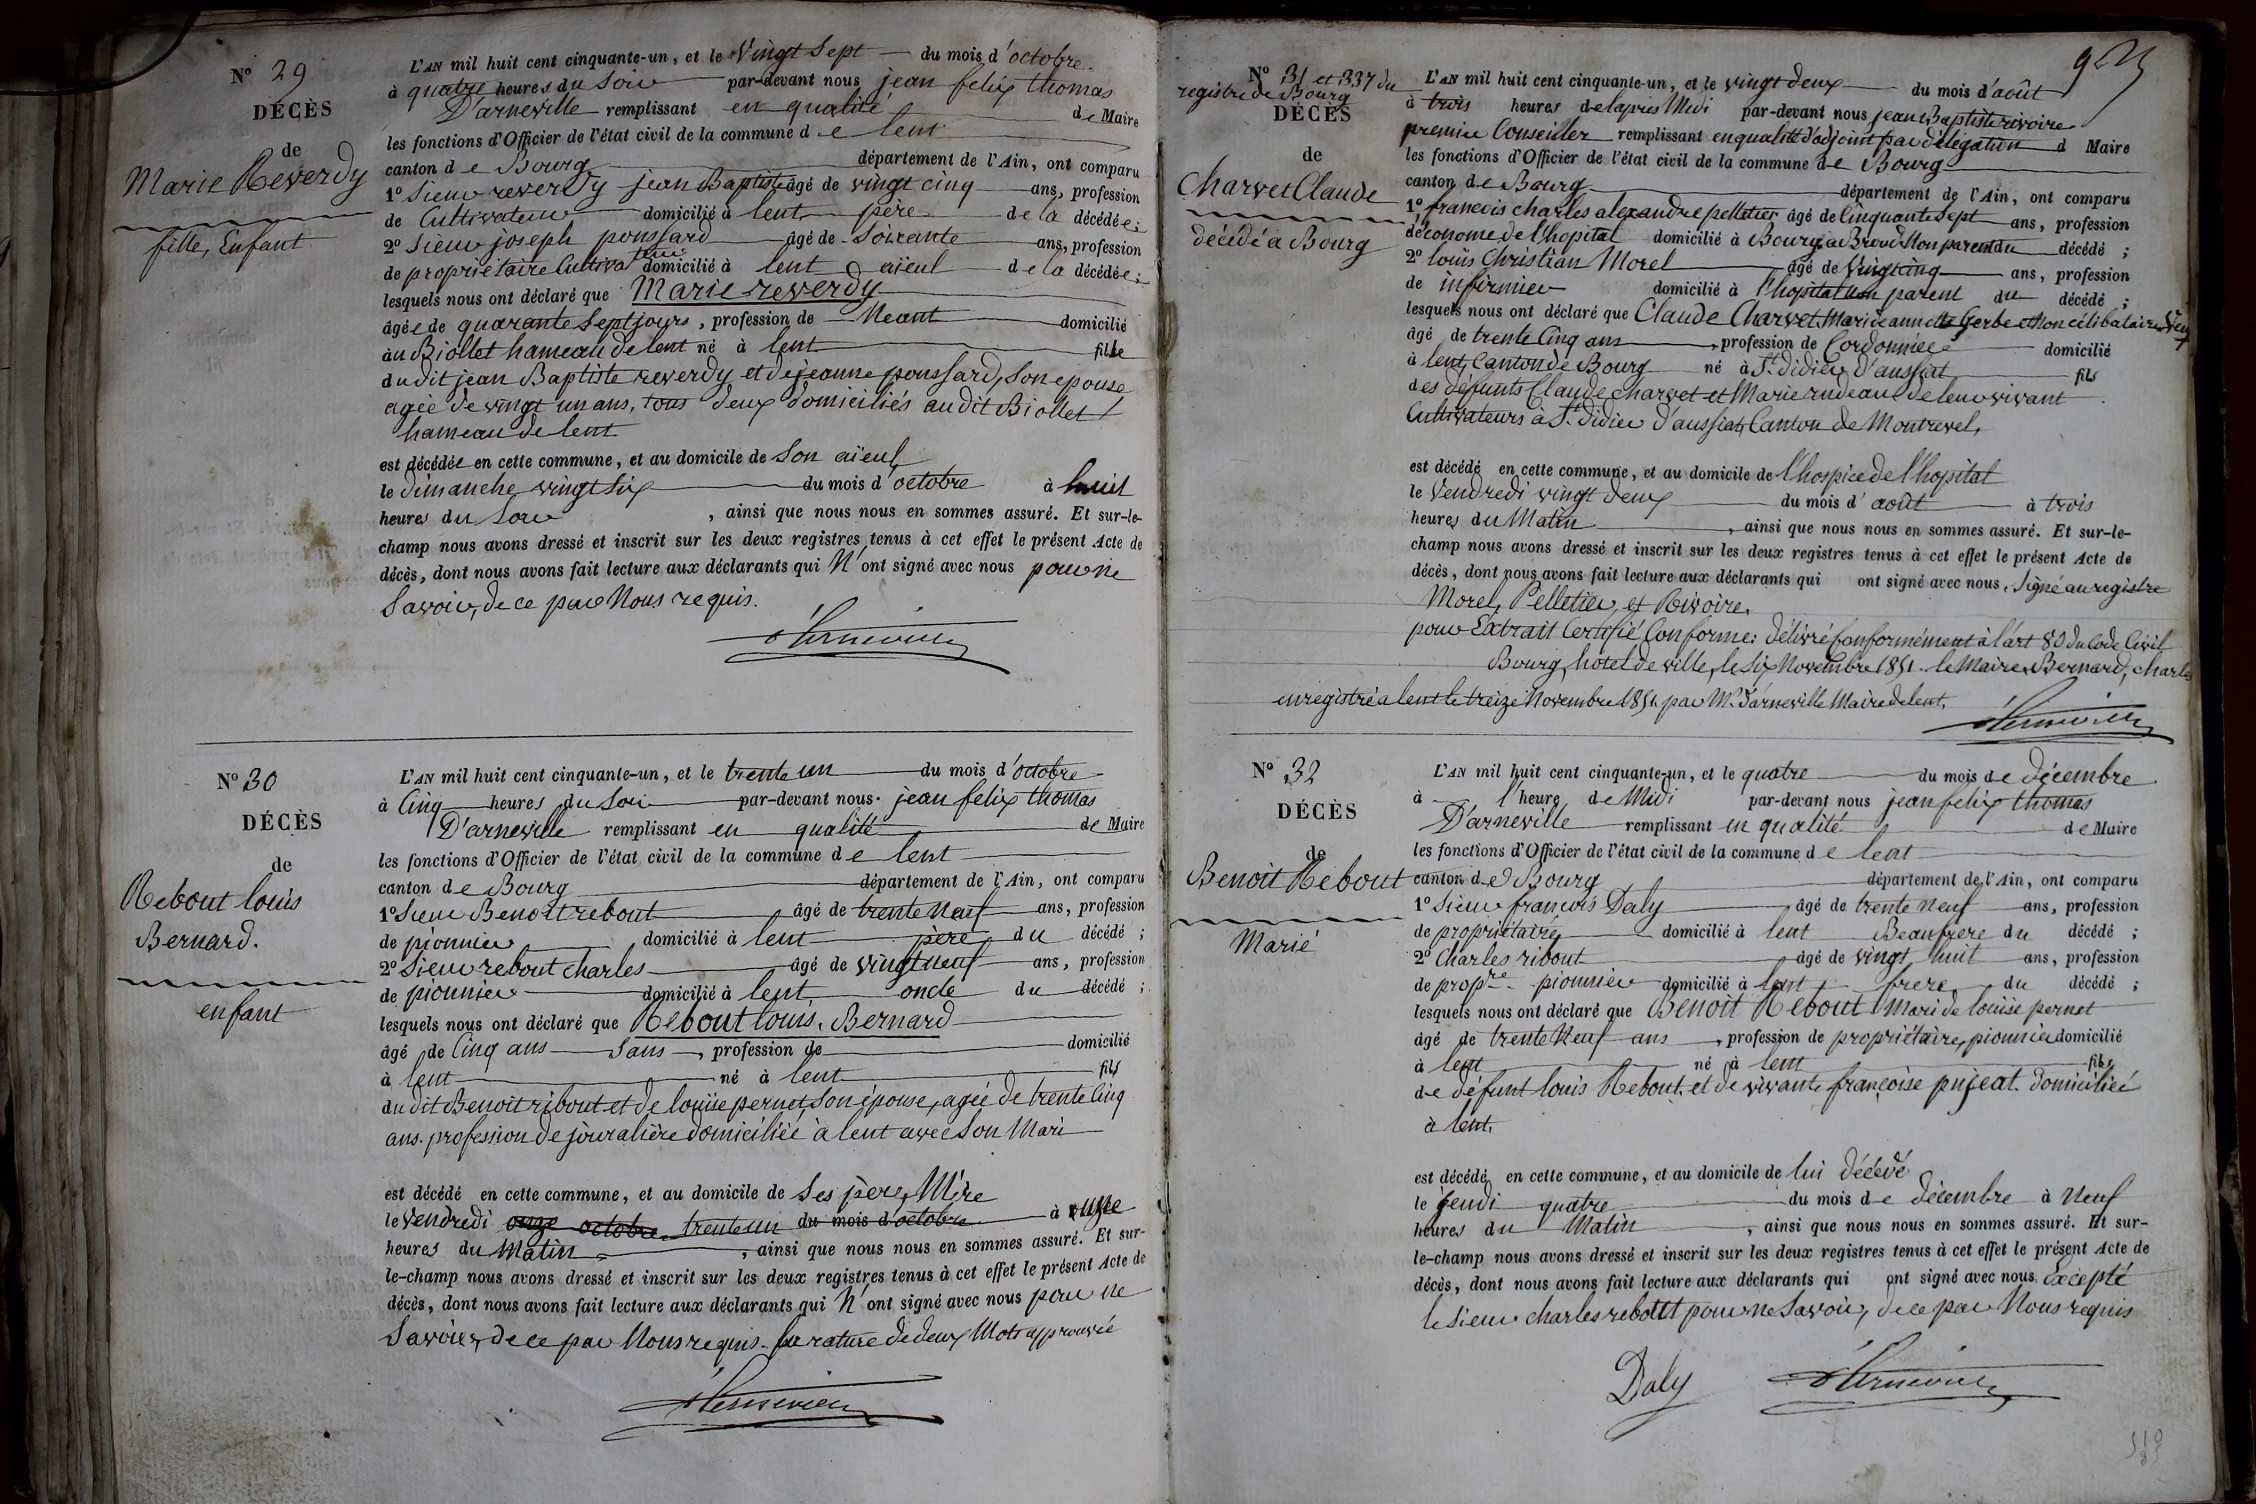 Nº 29
DÉCÈS
de
Marie Reverdy
fille, Enfant
L'AN mil huit cent cinquante-un, et le Vingt Sept du mois d'octobre
à quatre heures du Soir par-devant nous jean felix thomas
D'arneville remplissant en qualité de Maire
les fonctions d'Officier de l'état civil de la commune de lent
canton de Bourg département de l'Ain, ont comparu
1º Sieur reverdy jean Baptiste âgé de vingt cinq ans, profession
de Cultivateur domicilié à lent père de la décédée;
2º Sieur joseph poussard âgé de Soixante ans, profession
de propriétaire Cultivateur domicilié à lent aïeul de la décédée;
lesquels nous ont déclaré que Marie reverdy
âgée de quarante Sept jours, profession de Neant domicilié
au Biollet hameau de lent né à lent fille
du dit jean Baptiste reverdy et de jeanne poussard, Son epouse
agée de vingt un ans, tous deux domiciliés au dit Biollet
hameau de lent
est décédée en cette commune, et au domicile de Son aïeul
le dimanche vingt Six du mois d'octobre à huit
heures du Soir, ainsi que nous nous en sommes assuré. Et sur-le-
champ nous avons dressé et inscrit sur les deux registres tenus à cet effet le présent Acte de
décès, dont nous avons fait lecture aux déclarants qui N'ont signé avec nous pour ne
Savoir, de ce par Nous requis.
Nº 30
DÉCÈS
de
Rebout louis
Bernard.
enfant
L'AN mil huit cent cinquante-un, et le trente un du mois d'octobre
à Cinq heures du Soir par-devant nous jean felix thomas
D'arneville remplissant en qualité de Maire
les fonctions d'Officier de l'état civil de la commune de lent
canton de Bourg département de l'Ain, ont comparu
1º Sieur Benoit rebout âgé de trente Neuf ans, profession
de pionnier domicilié à lent père du décédé;
2º Sieur rebout charles âgé de vingt neuf ans, profession
de pionnier domicilié à lent, oncle du décédé;
lesquels nous ont déclaré que Rebout louis. Bernard
âgé de Cinq ans Sans, profession de domicilié
à lent né à lent fils
du dit Benoit ribout et de louise pernet, son épouse, agée de trente Cinq
ans. profession de journalière domiciliée à lent avec Son Mari
est décédé en cette commune, et au domicile de Ses père, Mère
le Vendredi onze octobre trente un du mois d'octobre à onze
heures du Matin, ainsi que nous nous en sommes assuré. Et sur-
le-champ nous avons dressé et inscrit sur les deux registres tenus à cet effet le présent Acte de
décès, dont nous avons fait lecture aux déclarants qui N'ont signé avec nous pour ne
Savoir, de ce par Nous requis. la rature de deux Mots approuvée
Nº 31 et 337 du
registre de Bourg
DÉCÈS
de
Charvet Claude
décédé a Bourg
L'AN mil huit cent cinquante-un, et le vingt deux du mois d'août
à trois heures de l'apres Midi par-devant nous jean Baptiste rivoire
premier Conseiller remplissant en qualité d'adjoint par délégation d Maire
les fonctions d'Officier de l'état civil de la commune de Bourg
canton de Bourg département de l'Ain, ont comparu
1º francois charles alexandre pelletier âgé de Cinquante Sept ans, profession
d'économe de l'hopital domicilié à Bourg a Brou Non parent du décédé;
2º louis Christian Morel âgé de Vingt Cinq ans, profession
de infirmier domicilié à l'hopital non parent du décédé;
lesquels nous ont déclaré que Claude Charvet, Mari de annette Gerbe et Non célibataire
âgé de trente Cinq ans, profession de Cordonnier domicilié
à lent, Canton de Bourg né à St. didier d'aussiat fils
des défunts Claude charvet et Marie rudeau de leur vivant
Cultivateurs à St. didier d'aussiat, Canton de Montrevel,
est décédé en cette commune, et au domicile de l'hospice de l'hopital
le Vendredi vingt deux du mois d'août à trois
heures du Matin, ainsi que nous nous en sommes assuré. Et sur-le-
champ nous avons dressé et inscrit sur les deux registres tenus à cet effet le présent Acte de
décès, dont nous avons fait lecture aux déclarants qui ont signé avec nous. Signé au registre
Morel, Pelletier et Rivoire.
pour Extrait Certifié Conforme: délivré Conformément à l'art 80 du Code Civil
Bourg, hôtel de ville, le Six Novembre 1851. le Maire, Bernard, charles
enregistré a lent le treize Novembre 1851, par Mr. D'arneville Maire de lent.
Nº 32
DÉCÈS
de
Benoit Rebout
Marié
L'AN mil huit cent cinquante-un, et le quatre du mois de décembre
à l'heure de Midi par-devant nous jean felix thomas
D'arneville remplissant en qualité de Maire
les fonctions d'Officier de l'état civil de la commune de lent
canton de Bourg département de l'Ain, ont comparu
1º Sieur françois Daly âgé de trente neuf ans, profession
de propriétaire domicilié à lent Beaufrere du décédé;
2º Charles ribout âgé de vingt huit ans, profession
de propre. pionnier domicilié à lent frere du décédé;
lesquels nous ont déclaré que Benoit Rebout Mari de louise pernet
âgé de trente Neuf ans, profession de propriétaire, pionnier domicilié
à lent né à lent fils
de défunt louis Rebout et de vivante françoise pujeat. domiciliée
à lent,
est décédé en cette commune, et au domicile de lui décédé
le jeudi quatre du mois de décembre à Neuf
heures du Matin, ainsi que nous nous en sommes assuré. Et sur-
le-champ nous avons dressé et inscrit sur les deux registres tenus à cet effet le présent Acte de
décès, dont nous avons fait lecture aux déclarants qui ont signé avec nous. Excepté
le Sieur charles rebout pour ne Savoir, de ce par Nous requis
Daly